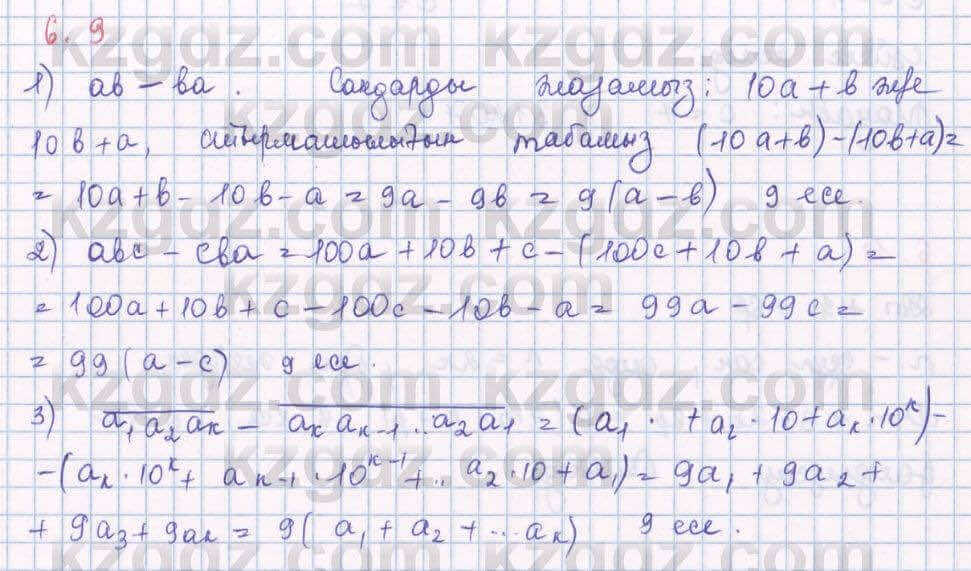 6.9
1) ab - ba. Сандарды жазамыз: 10a + b және
10b + a, айырмашылығын табамыз (10a+b) - (10b+a) =
= 10a + b - 10b - a = 9a - 9b = 9(a - b) 9 есе.
2) abc - cba = 100a + 10b + c - (100c + 10b + a) =
= 100a + 10b + c - 100c - 10b - a = 99a - 99c =
= 99(a - c) 9 есе.
3) a₁a₂aₖ - aₖaₖ₋₁..a₂a₁ = (a₁ · + a₂ · 10 + aₖ · 10ᵏ) -
- (aₖ · 10ᵏ + aₖ₋₁ · 10ᵏ⁻¹ + .. a₂ · 10 + a₁) = 9a₁ + 9a₂ +
+ 9a₃ + 9aₖ = 9(a₁ + a₂ + ... aₖ) 9 есе.
kzgdz.com